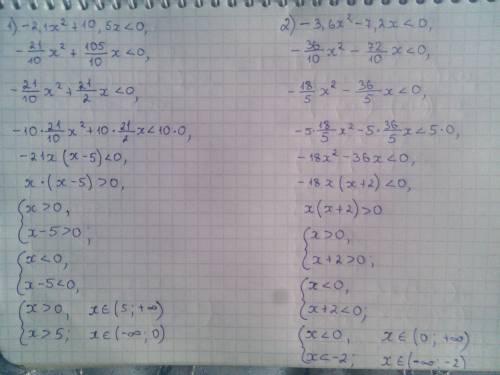 1) -2,1x² + 10,5x < 0,
-21/10 x² + 105/10 x < 0,
-21/10 x² + 21/2 x < 0,
-10·21/10 x² + 10·21/2 x < 10·0,
-21x (x-5) < 0,
x·(x-5) > 0,
{x > 0,
{x-5 > 0;
{x < 0,
{x-5 < 0,
{x > 0, x∈(5; +∞)
{x > 5; x∈(-∞; 0)
2) -3,6x² - 7,2x < 0,
-36/10 x² - 72/10 x < 0,
-18/5 x² - 36/5 x < 0,
-5·18/5 x² - 5·36/5 x < 5·0,
-18x² - 36x < 0,
-18x (x+2) < 0,
x(x+2) > 0
{x > 0,
{x+2 > 0;
{x < 0,
{x+2 < 0;
{x < 0, x∈(0; +∞)
{x < -2; x∈(-∞; -2)